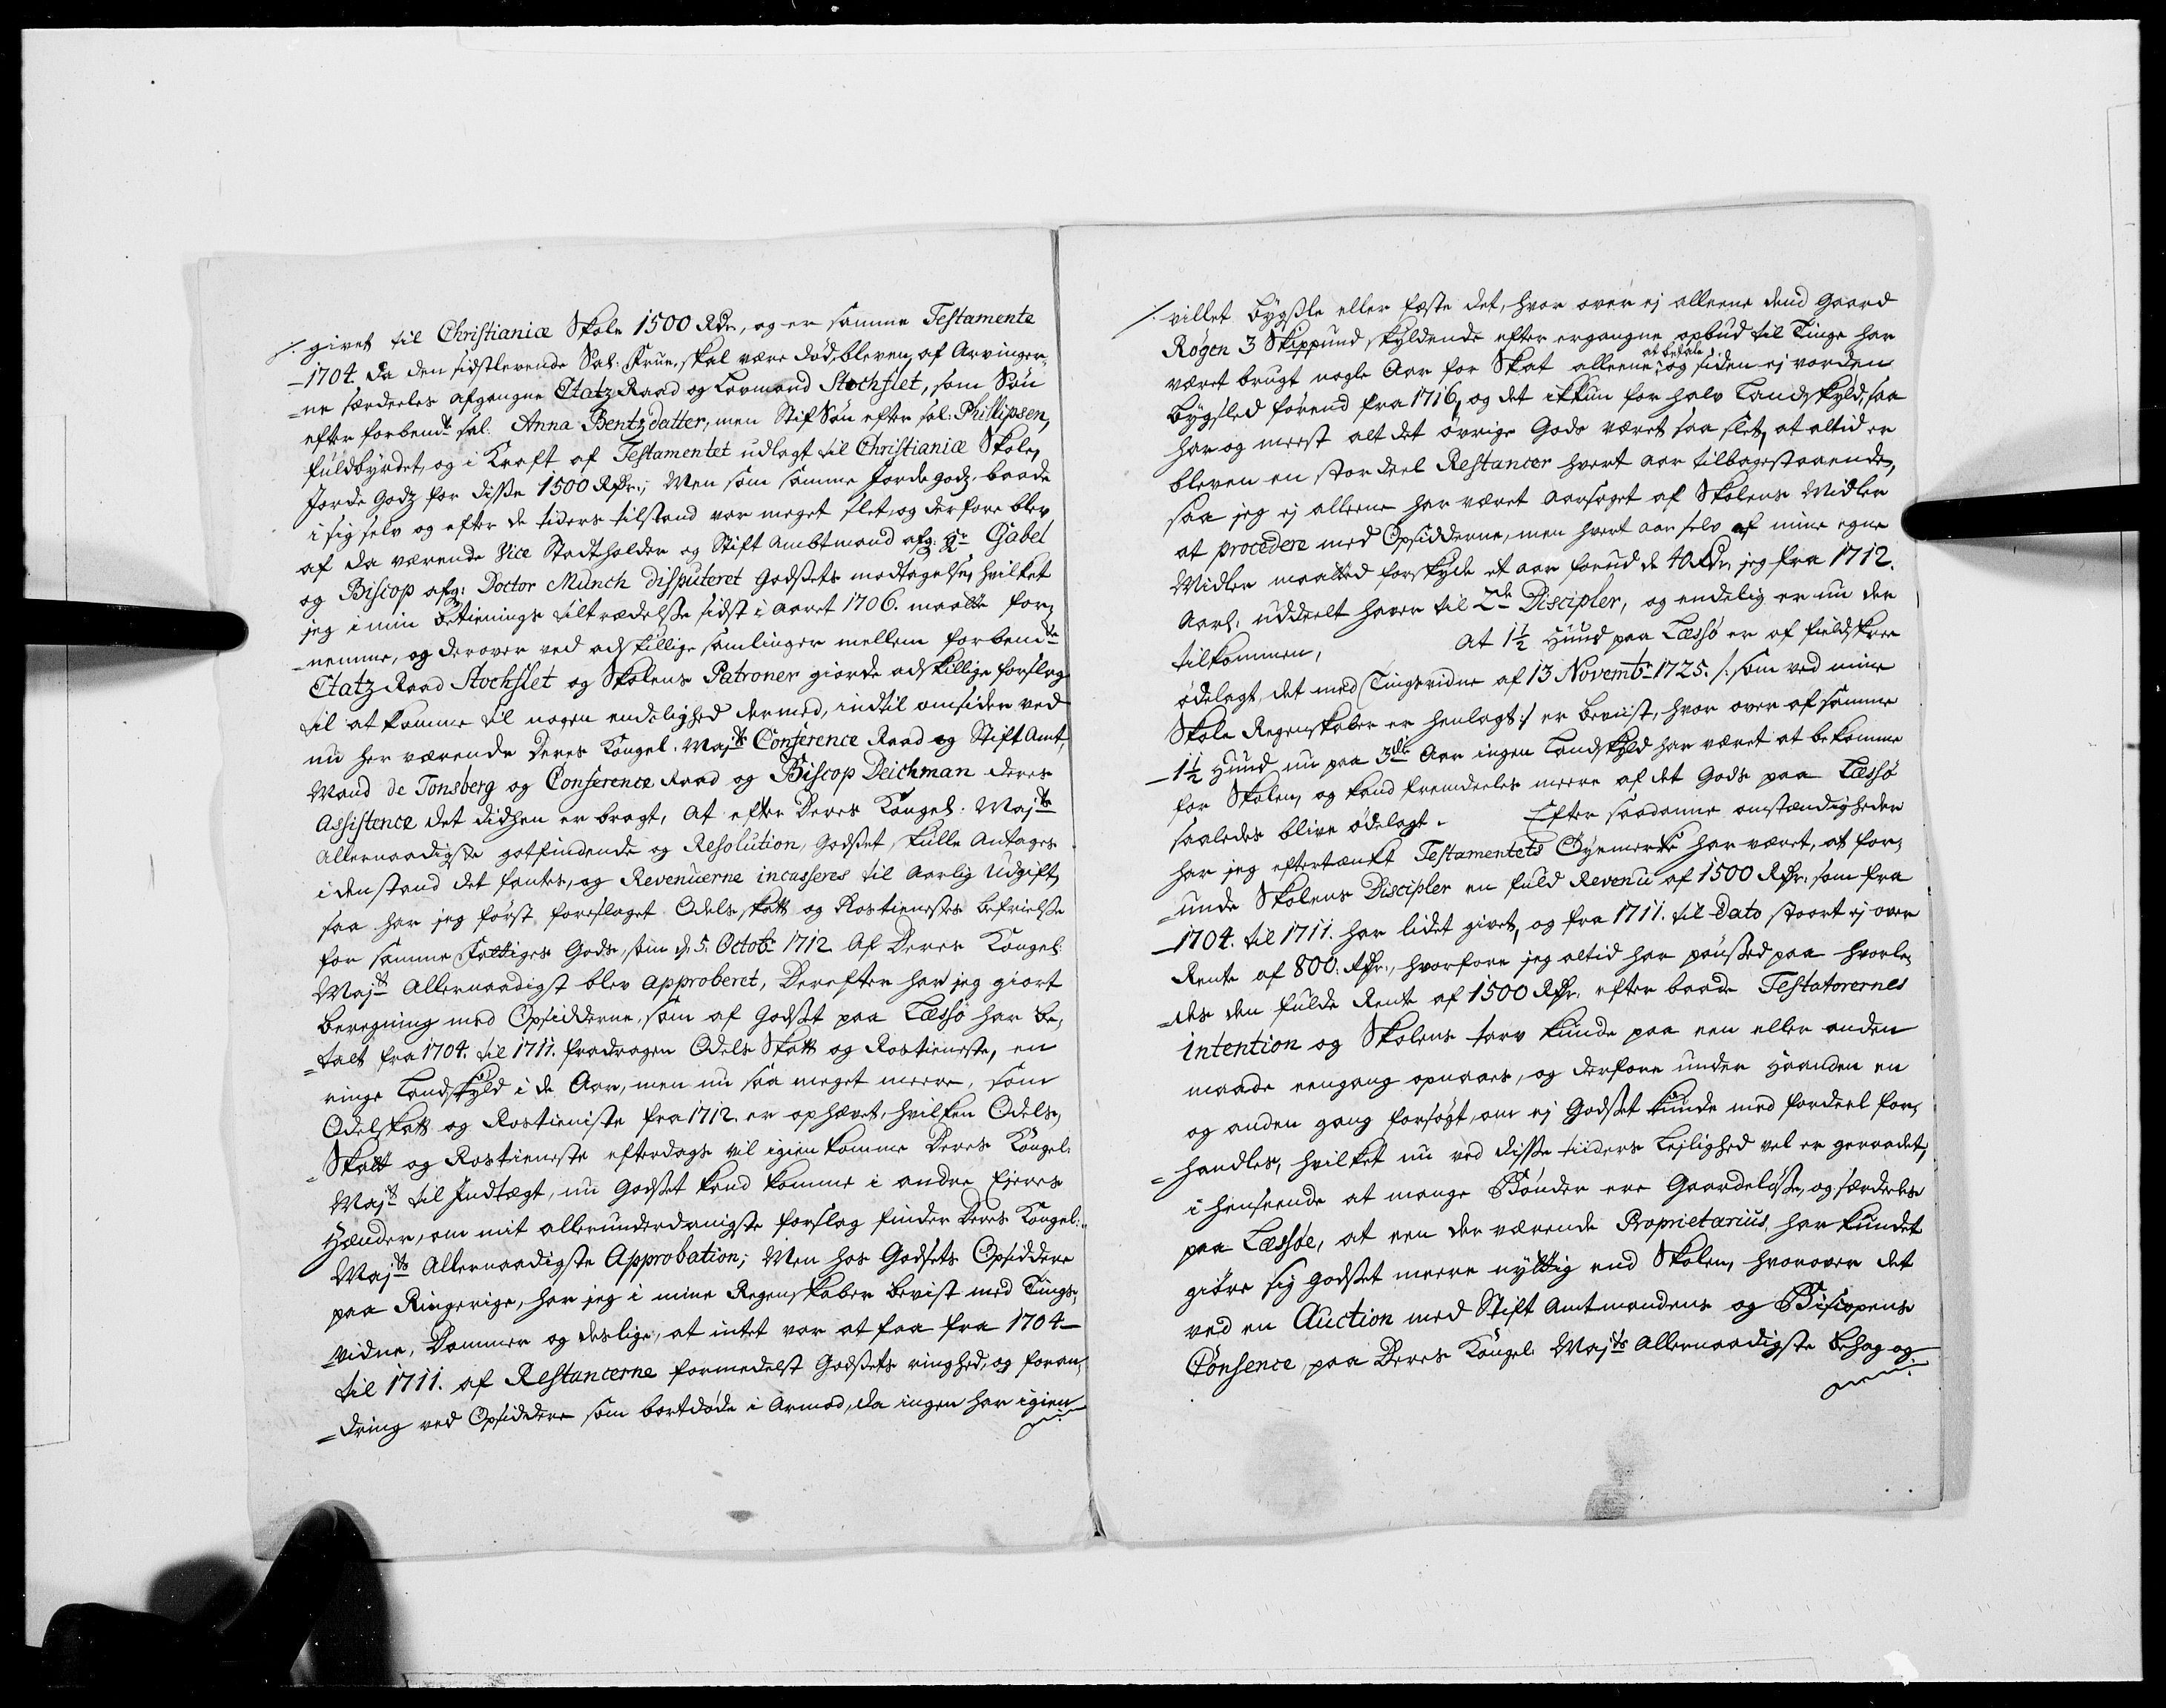 /. givet til Christianiæ Skole 1500 Rdr, og er samme Testamente
-1704. da den sidstlevende Sal: Frue, skal være død bleven, af Arvinger-
-ne særdeeles afgangne Etatz Raad og Lavmand Stochflet, som Søn
efter forbemte sal. Anna Bentzdatter, men Stif Søn efter sal: Phillipsen,
fuldbyrdet, og i Kraft af Testamentet udlagt til Christianiæ Skole,
Jorde Godz for disse 1500 Rdr.; Men som samme Jordegodz baade
i sig selv og efter de tiders tilstand var meget slet, og derfore blev
af da værende Vice Stadtholder og Stift Ambtmand afg: Hr Gabel
og Biscop afg: Doctor Munch disputeret Godsets modtagelse, hvilket
jeg i min betienings tiltrædelse sidst i aaret 1706. maatte for-
-nemme, og derover ved adskillige samlinger mellem forbemte
Etatz Raad Stochflet og Skolens Patroner giorde adskillige forslag
til at komme til nogen endelighed dermed, indtil omsider ved
nu her værende Deres Kongel. Majts Conference Raad og Stift Amt-
Mand de Tonsberg og Conference Raad og Biscop Deichman deres
Assistence det didhen er bragt, At efter Deres Kongel. Majts
Allernaadigste gotfindende og Resolution, Godset skulle Antages
i den stand det fantes, og Revenuerne incasseres til Aarlig Udgift,
saa har jeg først foreslaget Odelsskatt og Rostienestes befrielse
for samme Fattiges Gods, som d. 5. Octobr 1712 Af Deres Kongel
Majt Allernaadigst blev Approberet, Derefter har jeg giort
beregning med Opsidderne, som af Godset paa Læssø har be-
-talt fra 1704. til 1711. fradragen Odels Skatt og Rostieneste, en
ringe Landskyld i de Aar, men nu saa meget meere, som
Odelskatt og Rostieniste fra 1712. er ophævet, hvilken Odels-
-Skatt og Rostieneste efterdags vil igien komme Deres Kongel.
Majt til Indtægt, nu Godset kand komme i andre Ejeres
Hænder, om mit allerunderdanigste forslag finder Deres Kongel:
Majts Allernaadigste Approbation; Men hos Godsets Opsiddere
paa Ringerige, har jeg i mine Regenskaber bevist med Tings-
-vidne, Dommer og deslige, at intet var at faa fra 1704-
til 1711. af Restancerne formedelst Godsets ringhed, og foran-
-dring ved Opsiddere som bortdøde i Armod, da ingen har igien
/. villet bygsle eller fæste det, hvor over ej alleene dend Gaard
Røgen 3 Skippund skyldende efter ergangne opbud til Tinge har
været brugt nogle Aar for Skat alleene at betale, og siden ej vorden
bygsled førend fra 1716, og det ikkun for halv Landskyld, saa
har og meest alt det øvrige Gods været saa slet, at altid er
bleven en stor deel Restancer hvert aar tilbagestaaende,
saa jeg ej alleene har været aarsaget af Skolens Midler
at procedere med Opsidderne, men hvert aar selv af mine egne
Midler maatted forskyde et aar forud de 40 Rdr, jeg fra 1712.
Aarl. uddeelt haver til 2de Discipler, og endelig er nu der
tilkommen, At 1½ Hund paa Læssø er af fieldskree
ødelagt, det med Tingsvidne af 13 Novembr 1725. /: som ved mine
Skole Regenskaber er henlagt :/ er beviist, hvor over af samme
-1½ Hund nu paa 3die Aar ingen Landskyld har været at bekomme
for Skolen, og kand fremdeeles meere af det Gods paa Læssø
saaledes blive ødelagt. Efter saadanne omstændigheder
har jeg eftertænkt Testamentets Øyemerke har været, at for-
-unde Skolens Discipler en fuld Revenu af 1500 Rdr: som fra
-1704. til 1711. har lidet givet, og fra 1711. til Dato stoort ej over
Rente af 800: Rdr., hvorfore jeg altid har pousset paa hvorle-
-des den fulde Rente af 1500 Rdr. efter baade Testatorernes
intention og Skolens tarv kunde paa een eller anden
maade eengang opnaaes, og derfore under Haanden en
og anden gang forsøgt, om ej Godset kunde med fordeel for-
-handles, hvilket nu ved disse tiiders Lejlighed vel er geraadet,
i henseende at mange Bønder ere Gaardeløsse, og særdeeles
paa Læssøe, at een der værende Proprietarius, har kundet
giøre sig Godset meere nyttig end Skolen, hvorover det
ved en Auction med Stift Amtmandens og Biscopens
Consence, paa Deres Kongel. Majts Allernaadigste behag og